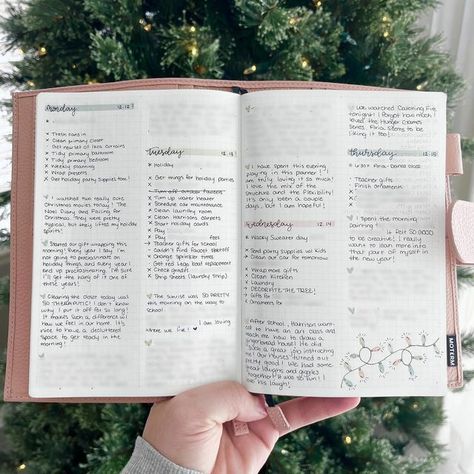 monday 12.12
Trash cans in
Clean primary closer
Get new set of IKEA curtains
Tidy primary bathroom
Tidy primary bedroom
Weekly planning
Wrap presents
Get holiday party supplies too!
I watched two really cute
Christmas movies today! The
Noel Diary and Falling for
Christmas. They were pretty
typical, but they lifted my holiday
spirits!
Started on gift wrapping this
morning! Every year I say I'm
not going to procrastinate on
holiday things, and every year I
end up procrastinating. I'm sure
I'll get the hang of it one of
these years!
Cleaning the closet today was
SO THERAPEUTIC! I don't know
why I put it off for so long!
It makes such a difference in
how we feel in our home. It's
nice to have a decluttered
space to get ready in the
morning!
tuesday 12.13
Holiday
Get things for holiday parties
Turn off outside faucets
Turn up water heater
Schedule car maintenance
Clean laundry room
Clean laundry room
Clean inside of doors
Start holiday cards
Pay
Pay fees
Teacher gifts for School
Couldn't find faucet shutoff
Change sprinkler times
Get red lego bag replacement
Check grades
Ship sheets (laundry strip)
The sunrise was SO PRETTY
this morning on the way to
school!
I am loving
where we live!
I have spent this evening
playing in this planner! I
am truly loving it so much!
I love the mix of the
structure and the flexibility!
It's only been a couple
days, but I am hopeful!
wednesday 12.14
Wacky Sweater day
Send party supplies w/ kids
Clean out car for tomorrow
Wrap more gifts
Kitchen
Laundry
DECORATE THE TREE!
Gifts for
Ornaments for
After school, Harrison want-
ed to have an art class and
teach me how to draw a
gingerbread house! He did
such a great job instructing
me! Our houses turned out
pretty good! We had some
great laughs and giggles
together! It was so fun! I
love his laugh!
We watched Catching Fire
tonight! I forgot how much I
loved the Hunger Games
series. Finla seems to be
liking it too!
thursday 12.15
Teacher gifts
Finish ornaments
I spent the morning
painting!
It felt SO GOOD
to be creative! I really
want to lean more into
that part of myself in
the new year!
MOTERM